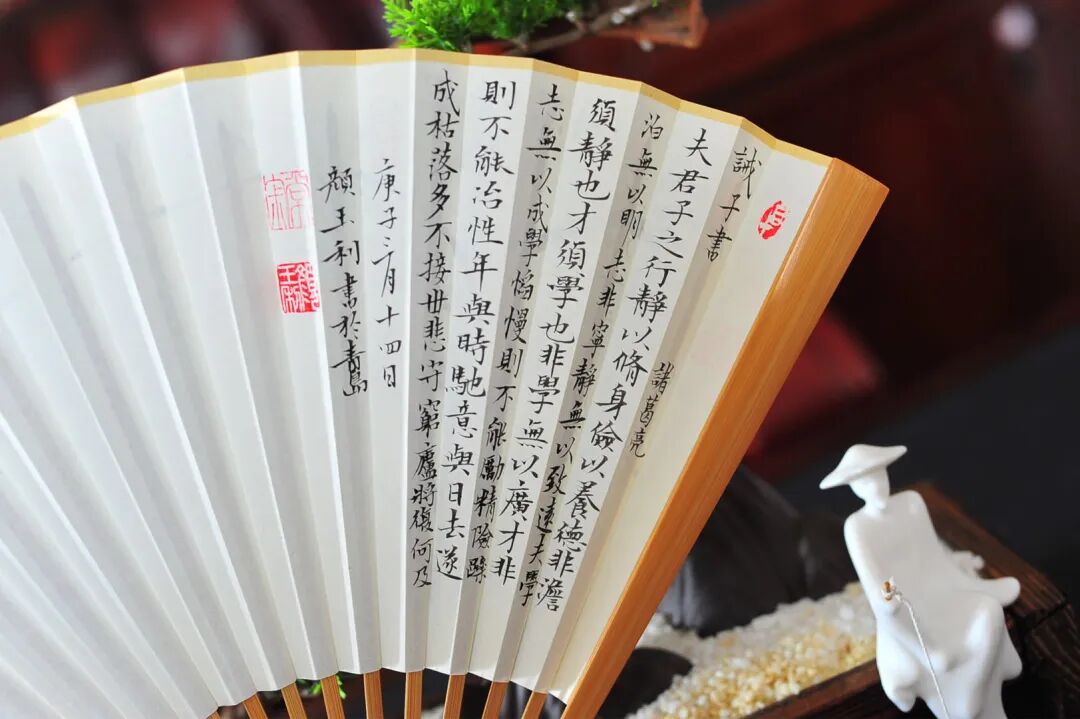 誡子書 諸葛亮
夫君子之行靜以脩身儉以養德非澹
泊無以明志非寧靜無以致遠夫學
須靜也才須學也非學無以廣才非
志無以成學慆慢則不能勵精險躁
則不能冶性年與時馳意與日去遂
成枯落多不接世悲守窮廬將復何及
庚子三月十四日
顏玉利書於青島